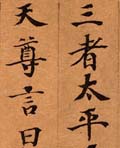 三者太平
天尊言曰